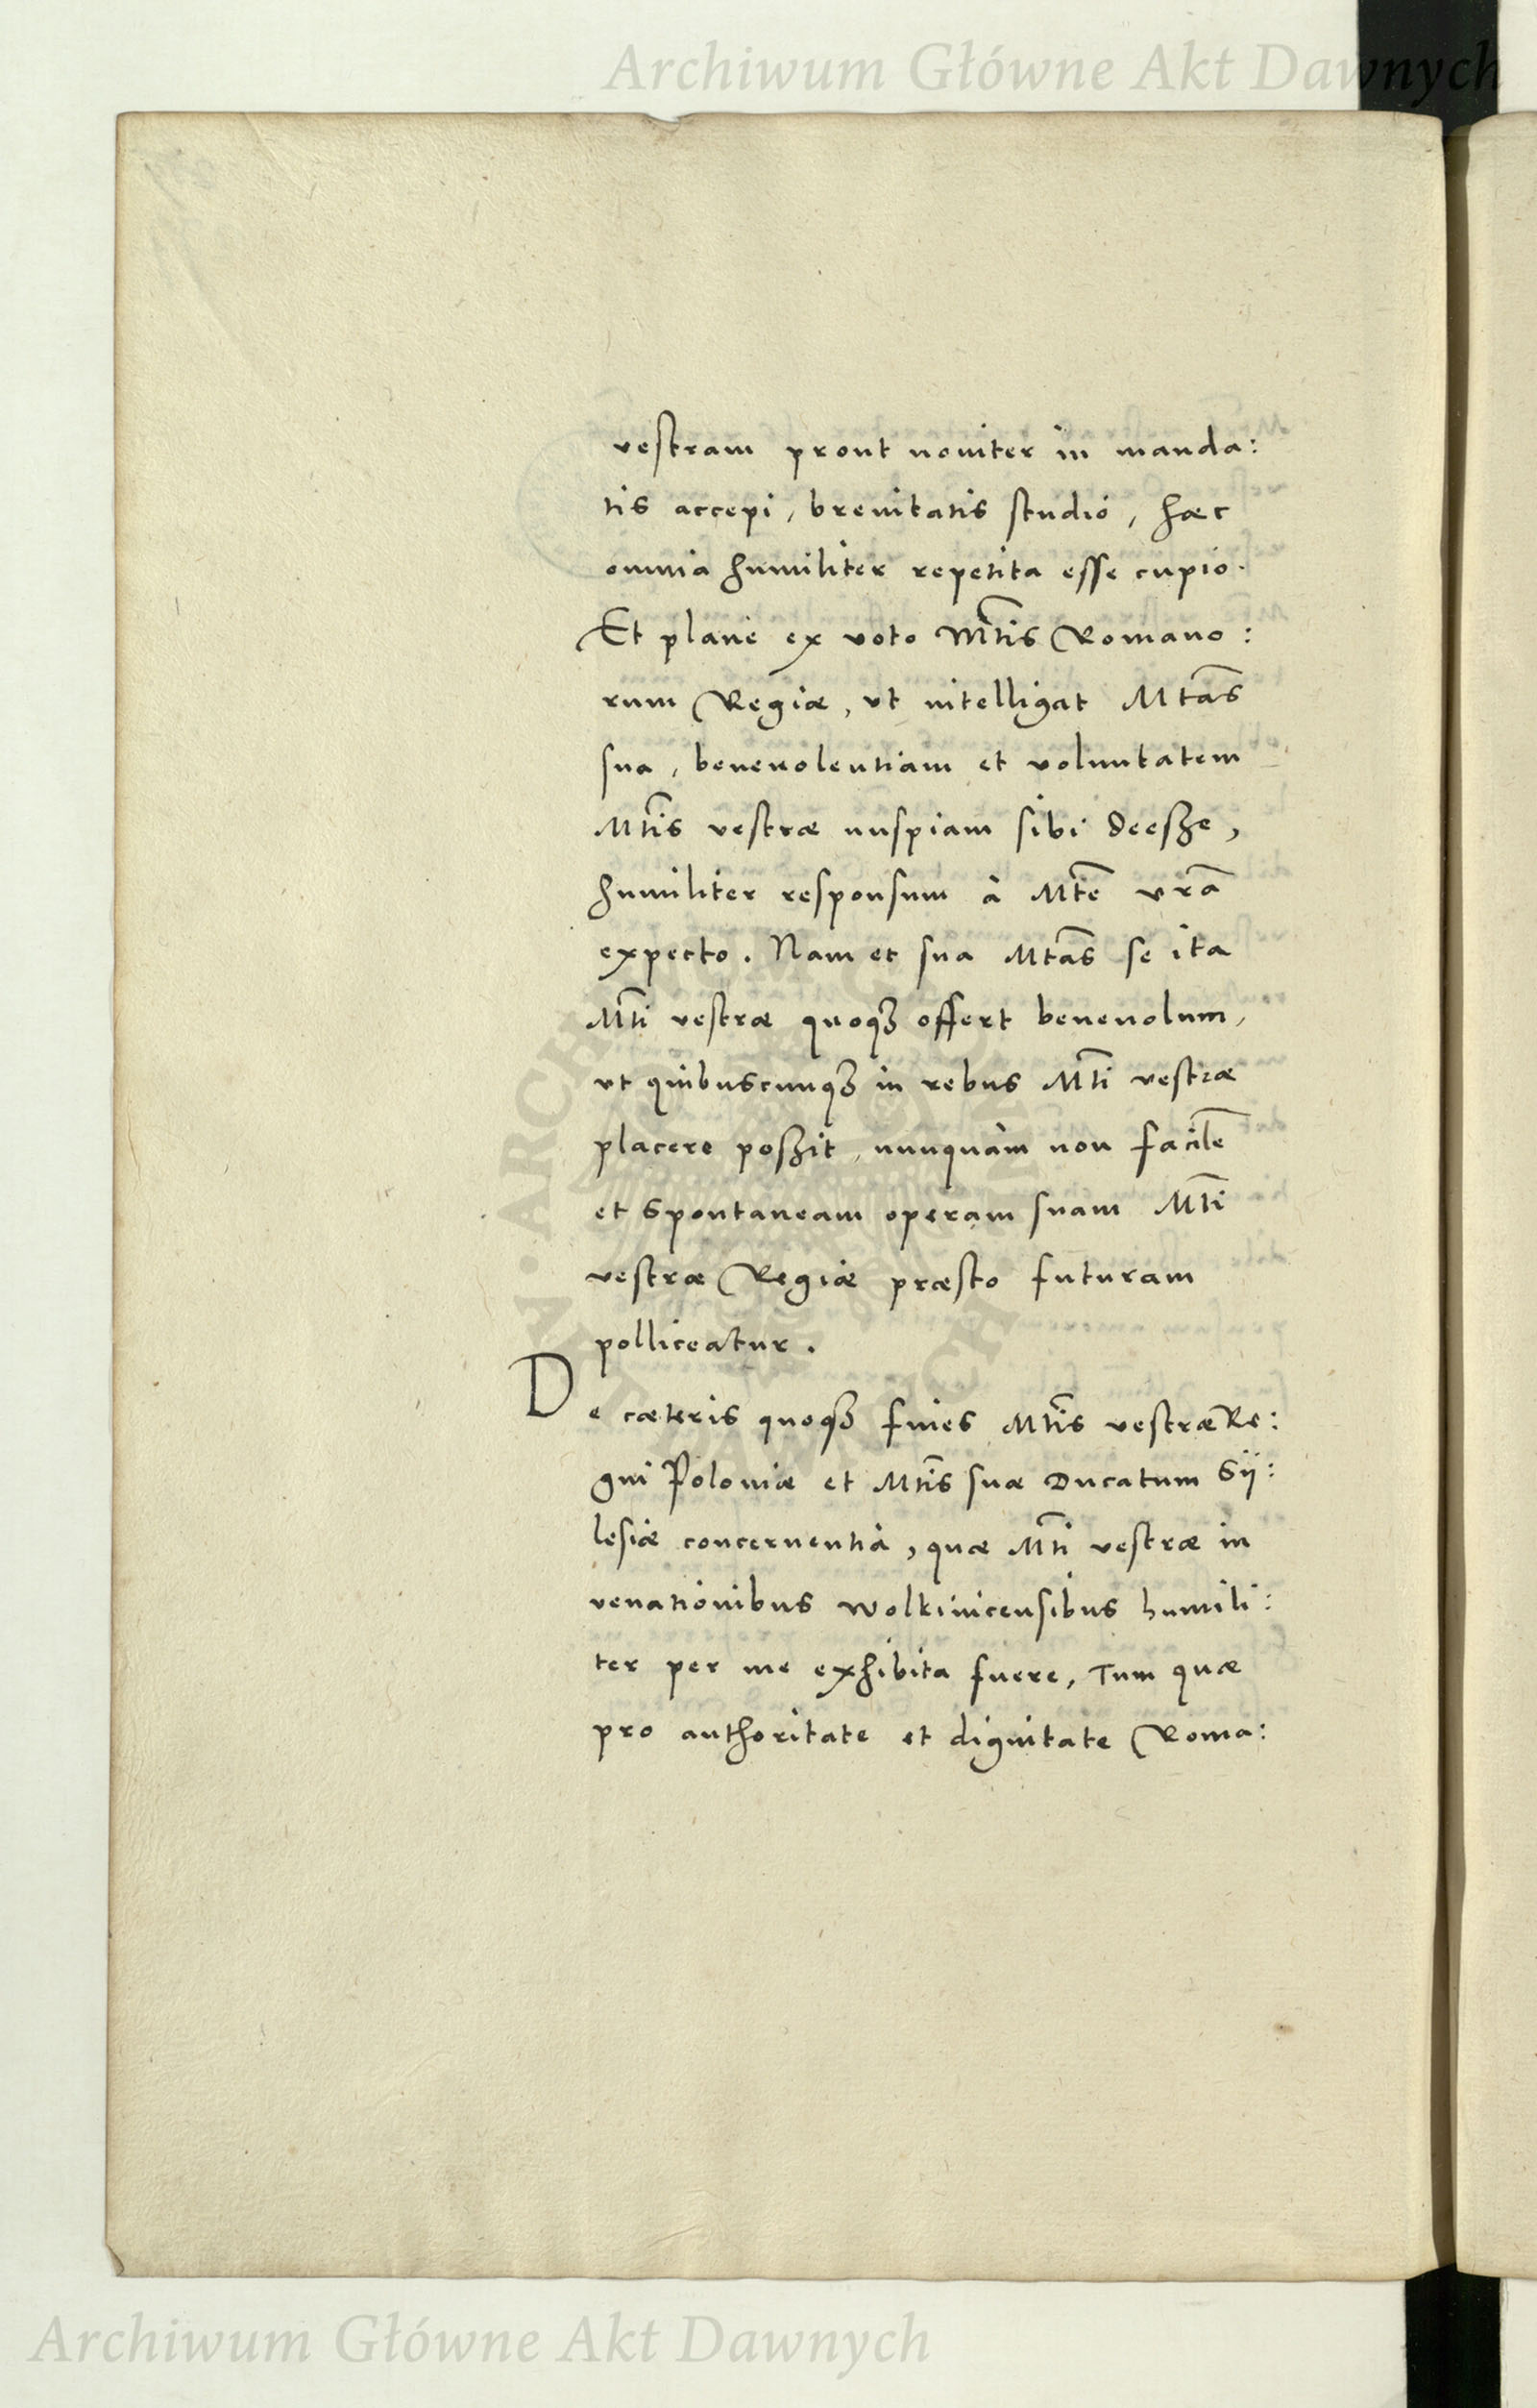 Archiwum Główne Akt Dawnych
vestram prout noviter in manda:
tis accepi, brevitatis studio, hæc
omnia humiliter repetita esse cupio.
Et planè ex voto Mtis Romano:
rum Regiæ, ut intelligat Mtas
sua, benevolentiam et voluntatem
Mtis vestræ nuspiam sibi deesze,
humiliter responsum à Mte vra
expecto. Nam et sua Mtas se ita
Mti vestræ quoqȝ offert benevolum,
ut quibuscunqȝ in rebus Mti vestræ
placere poszit, nunquàm non facilem
et spontaneam operam suam Mti
vestræ Regiæ præsto futuram
polliceatur.
De cæteris quoqȝ fines Mtis vestræ Re:
gni Poloniæ et Mtis suæ Ducatum Sÿ:
lesiæ concernentia, quæ Mti vestræ in
venationibus wolkinicensibus humili:
ter per me exhibita fuere, Tum quæ
pro authoritate et dignitate Roma:
Archiwum Główne Akt Dawnych